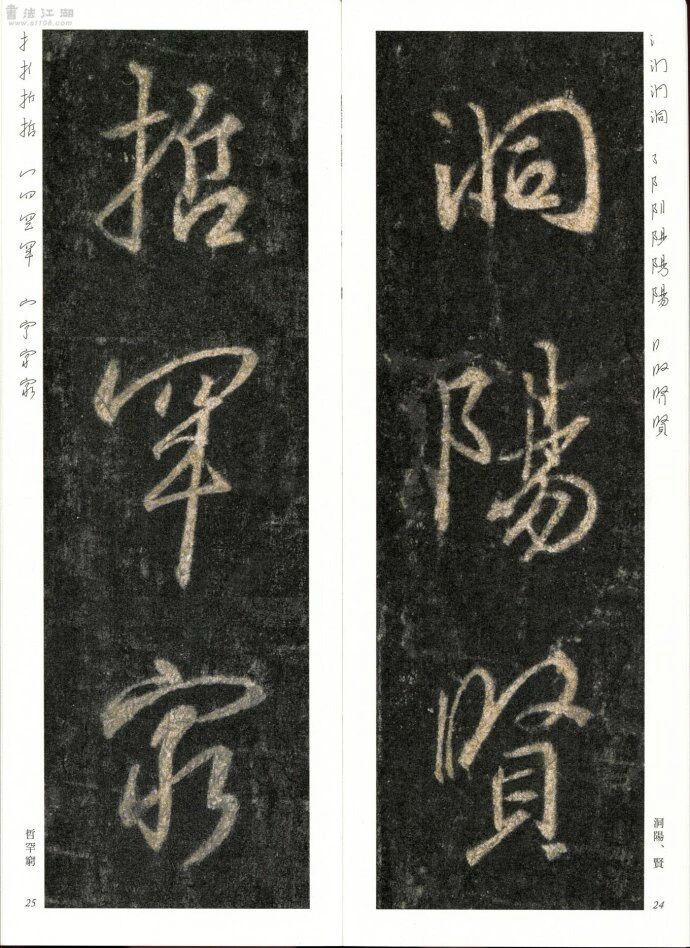 書法江湖
www.sf108.com
洞陽賢
洞陽、賢
24
哲罕窮
哲罕窮
25